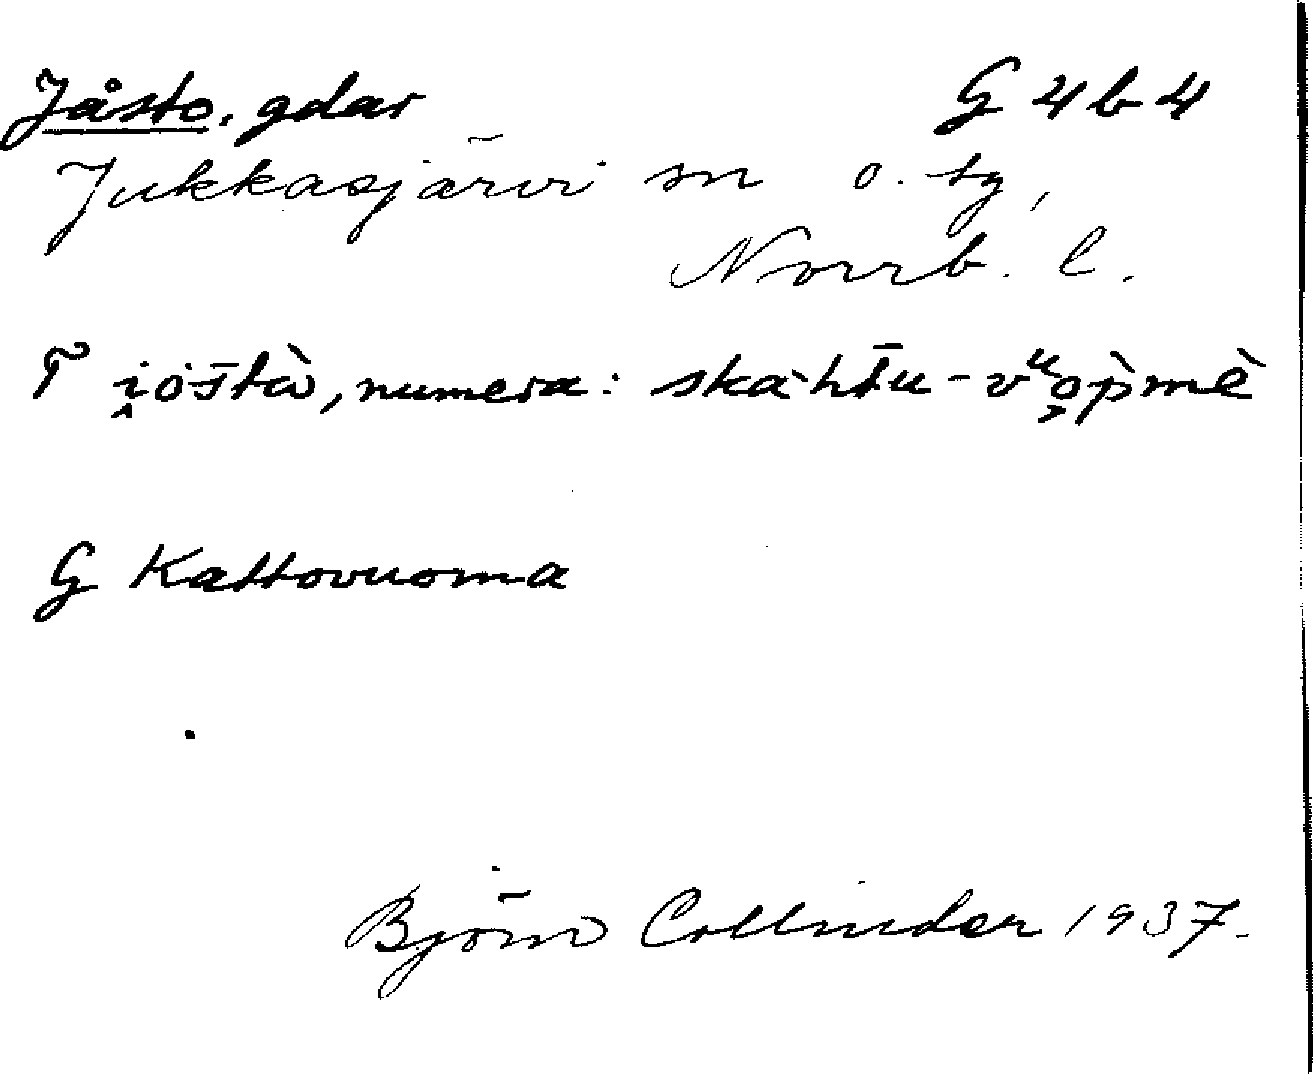 Jåsto, gdar G 4 b 4
Jukkasjärvi sn o. tg,
Norrb. l.
T i̭ös̄tà, numera: skàht̄u-vᵘo̜p̀mè
G Kattovuoma
Björn Collinder 1937.